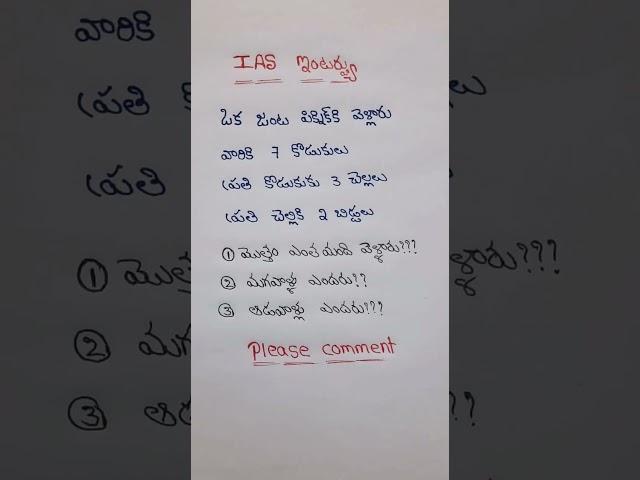 IAS ఇంటర్వ్యూ
ఒక జంట పిక్నిక్‌కి వెళ్లారు
వారికి 7 కొడుకులు
ప్రతి కొడుకుకు 3 చెల్లలు
ప్రతి చెల్లికి 2 బిడ్డలు
① మొత్తం ఎంతమంది వెళ్ళారు???
② మగవాళ్ళు ఎందరు??
③ ఆడవాళ్లు ఎందరు???
Please comment